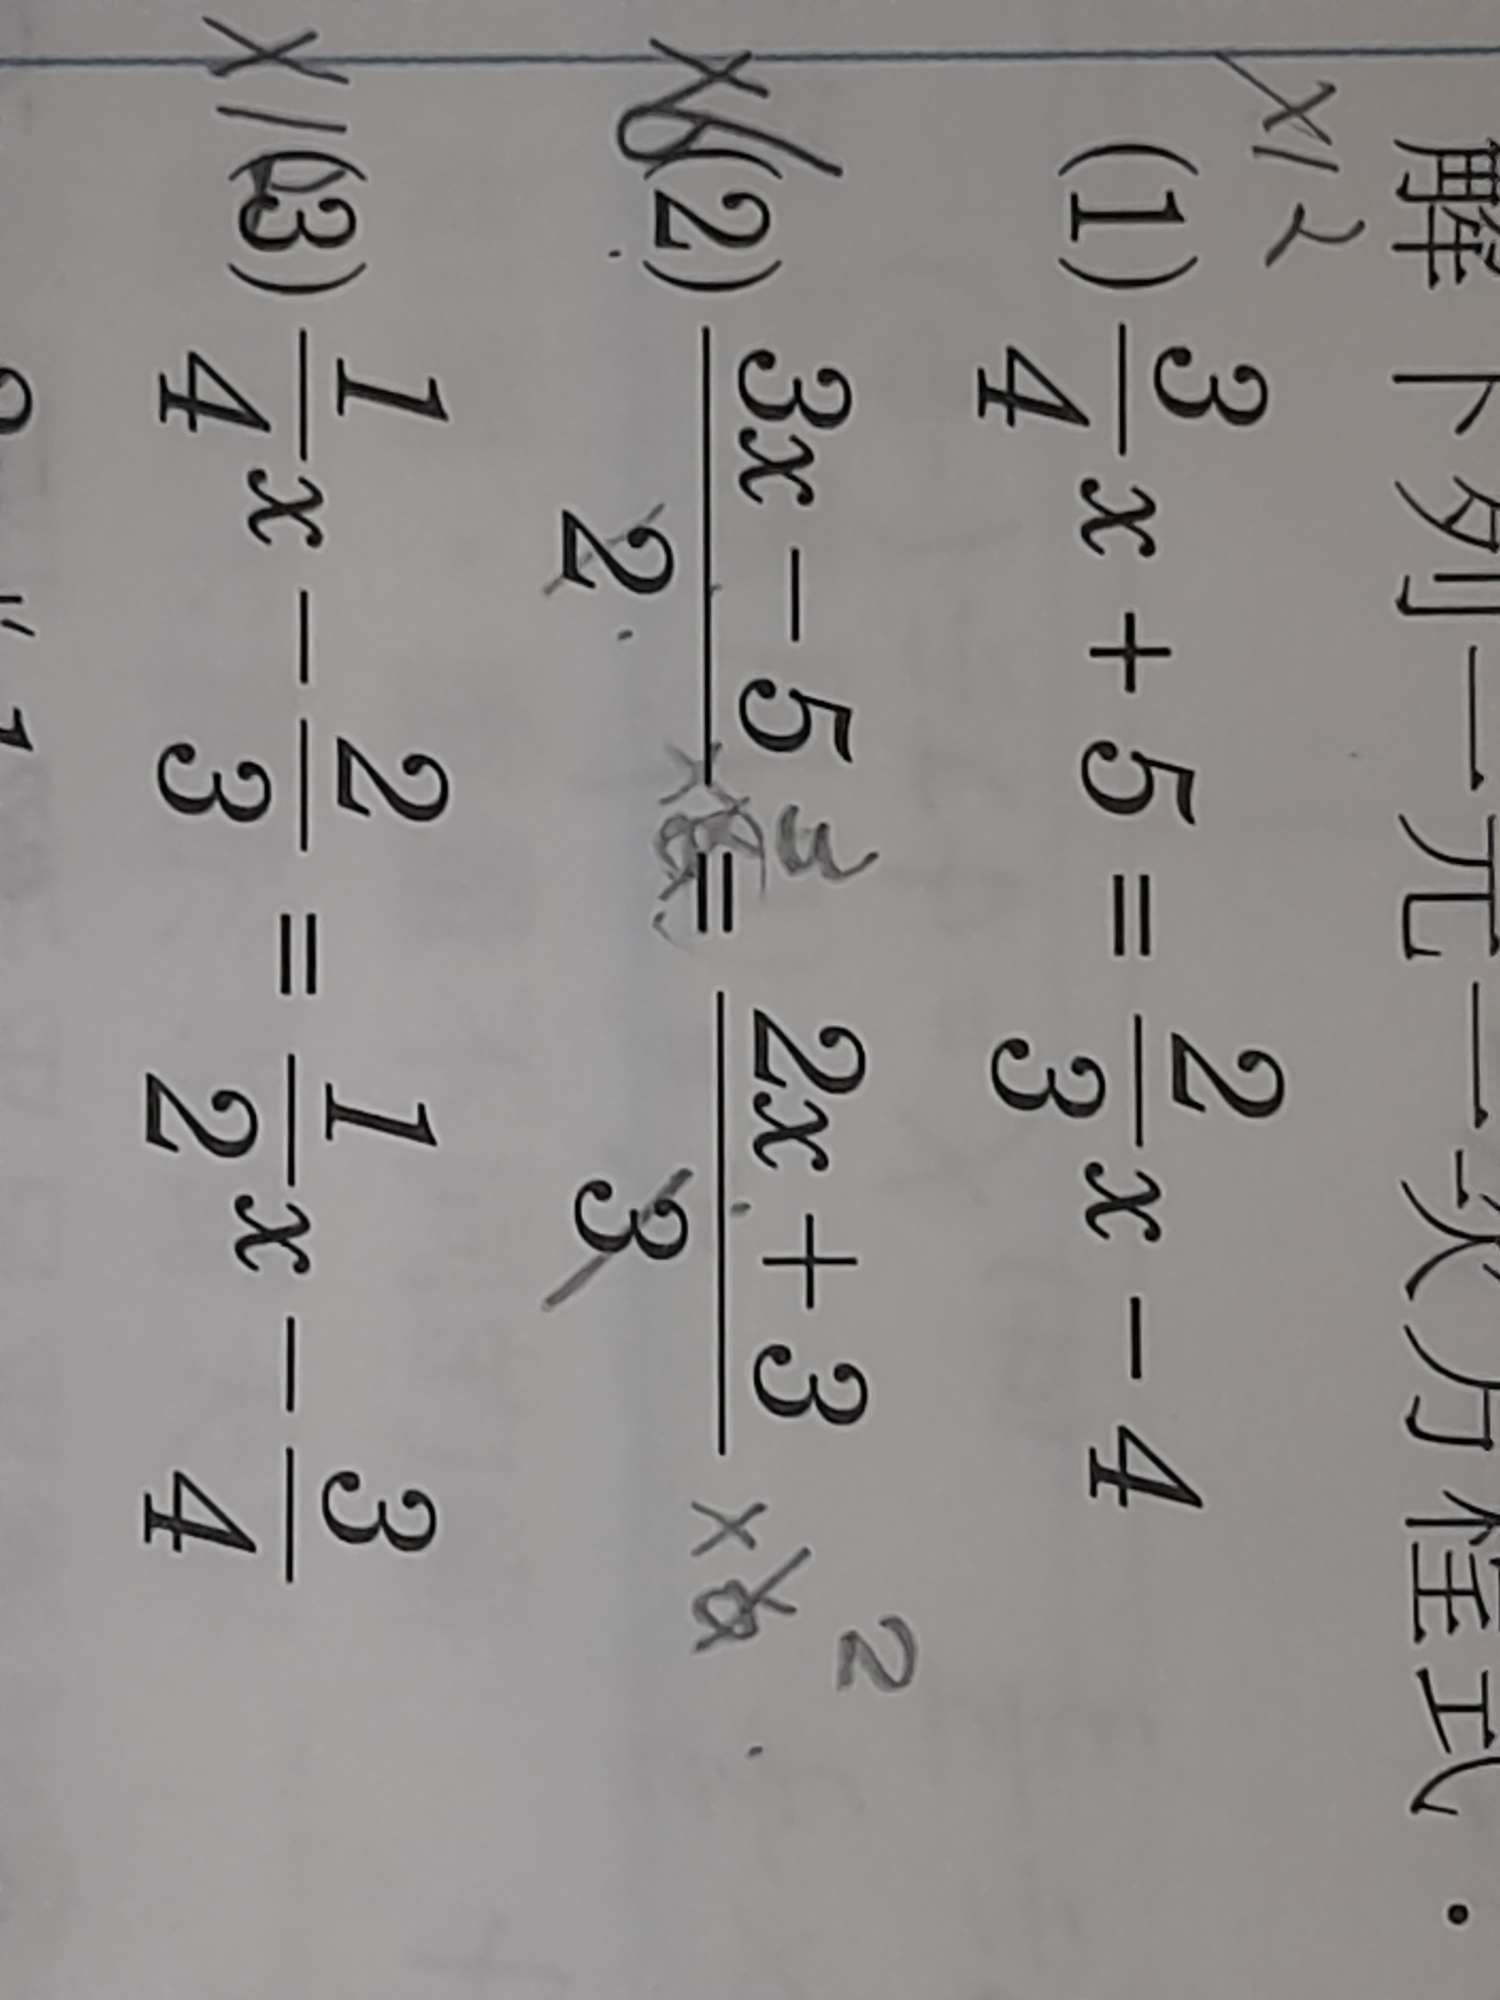 解下列一元一次方程式.
×12
(1) 3/4 x + 5 = 2/3 x − 4
×6
(2) (3x − 5)/2 = (2x + 3)/3 ×6 2
3
(3) 1/4 x − 2/3 = 1/2 x − 3/4